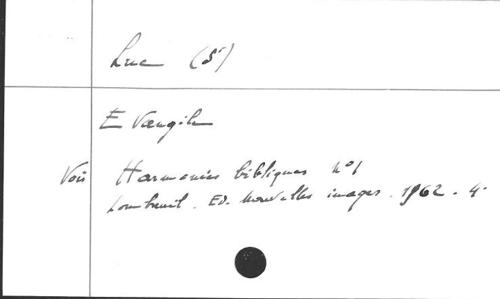 Luc (St)
Evangile
Voir Harmonies bibliques N° 1
Lombreuil. Ed. Nouvelles images. 1962. 4°